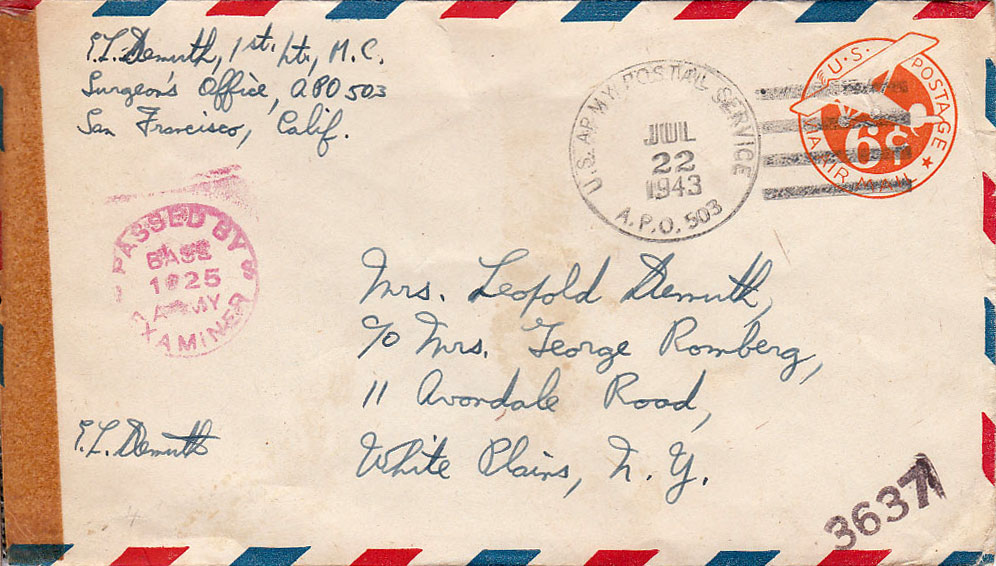 E.L. Demuth, 1st. Lt., M.C.
Surgeon's Office, APO 503
San Francisco, Calif.
U.S. ARMY POSTAL SERVICE
JUL
22
1943
A.P.O. 503
U.S. POSTAGE
6¢
VIA AIR MAIL
PASSED BY
BASE
1025
ARMY
EXAMINER
Mrs. Leopold Demuth,
c/o Mrs. George Romberg,
11 Avondale Road,
White Plains, N.Y.
E.L. Demuth
3637